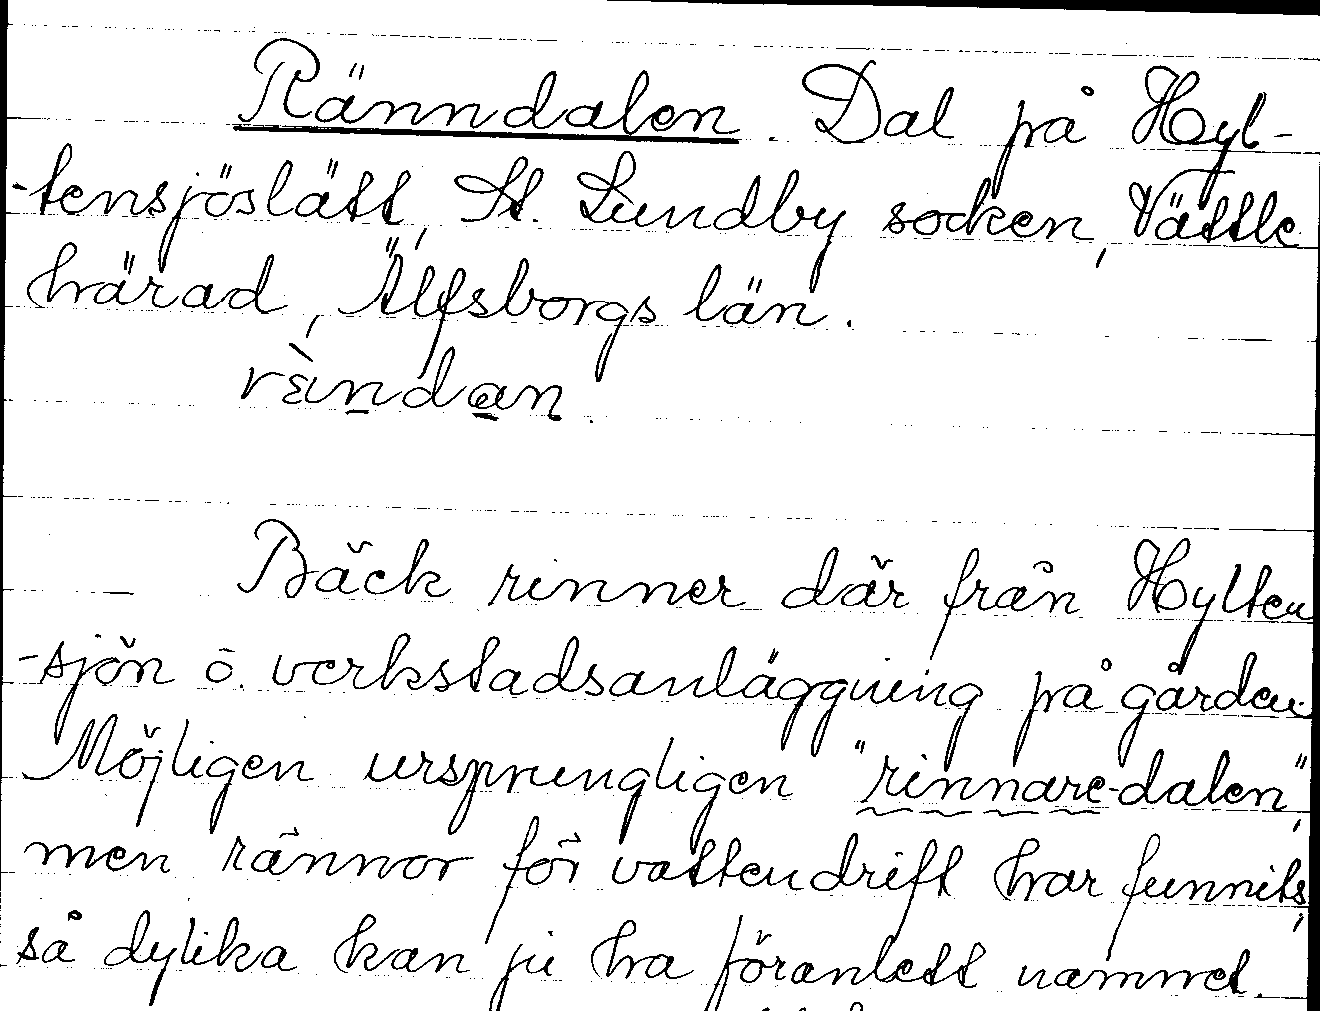 Ränndalen. Dal på Hyl-
-tensjöslätt, St. Lundby socken, Vättle
härad, Älfsborgs län.
Bäck rinner där från Hylten
-sjön o. verkstadsanläggning på gården.
Möjligen ursprungligen "rinnare-dalen",
men rännor för vattendrift har funnits,
så dylika kan ju ha föranlett namnet.